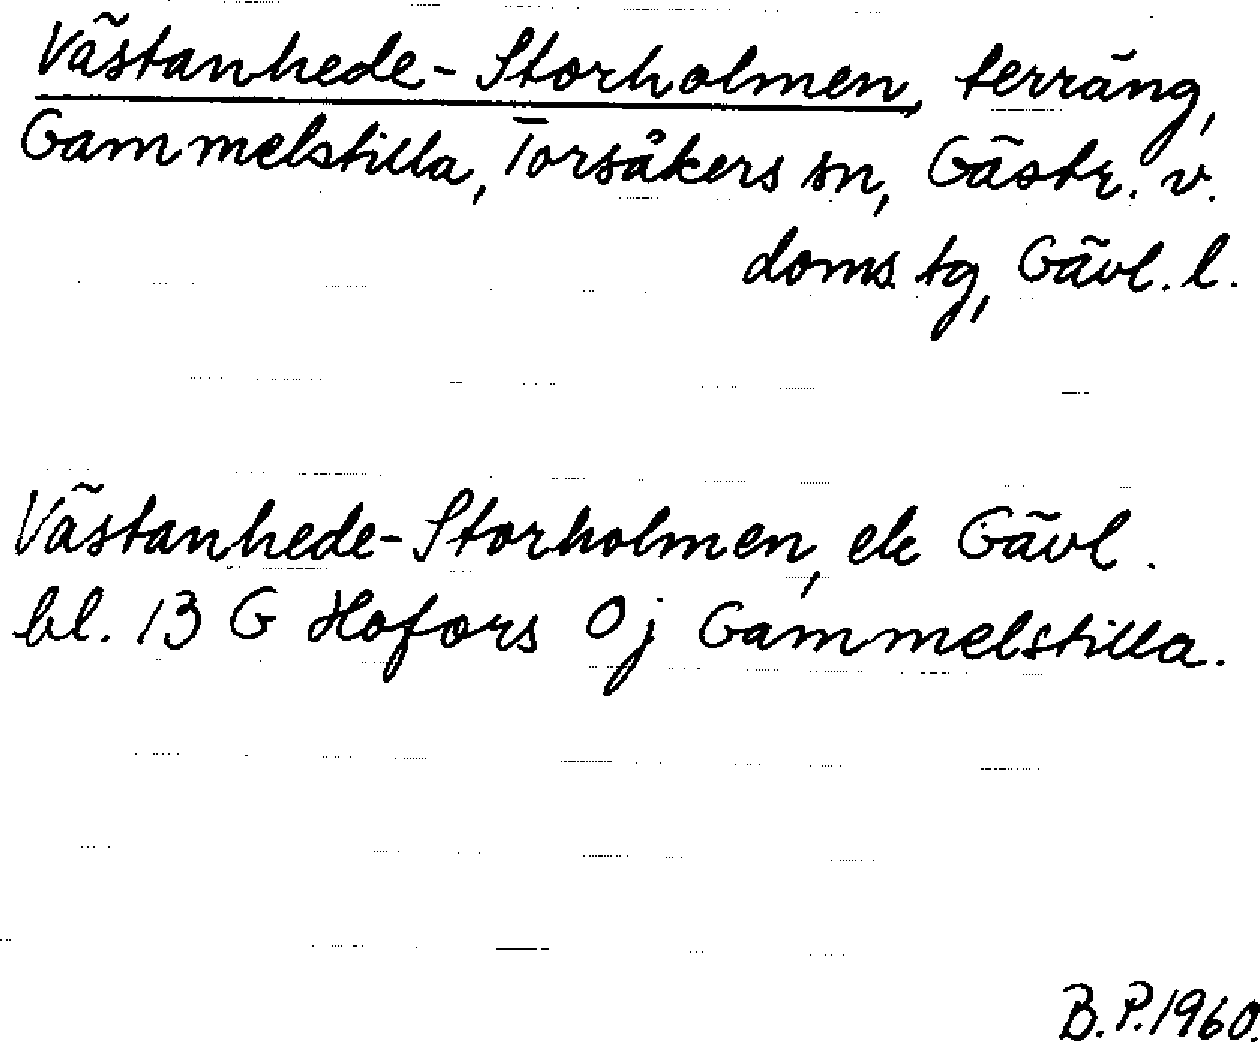 Västanhede-Storholmen, terräng,
Gammelstilla, Torsåkers sn, Gästr. v.
doms tg, Gävl. l.
Västanhede-Storholmen, ek Gävl.
bl. 13 G Hofors 0j Gammelstilla.
B.P. 1960.